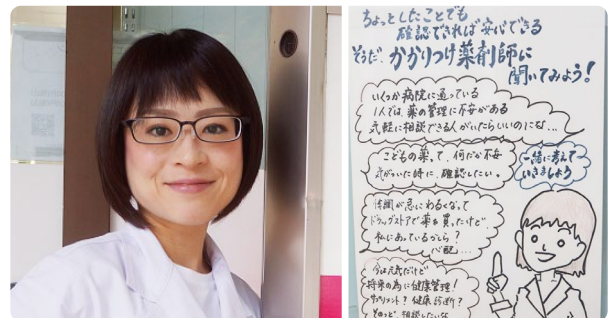 ちょっとしたことでも
確認できれば安心できる
そうだ、かかりつけ薬剤師に
聞いてみよう!
いくつか病院に通っている
1人では、薬の管理に不安がある
気軽に相談できる人がいたらいいのにな…
こどもの薬って、何だか不安
気がついた時に、確認したい。
一緒に考えて
いきましょう
体調が急にわるくなって
ドラッグストアで薬を買ったけど、
私にあっているかしら?
心配…
今は元気だけど
将来の為に健康管理!
サプリメント?健康診断?